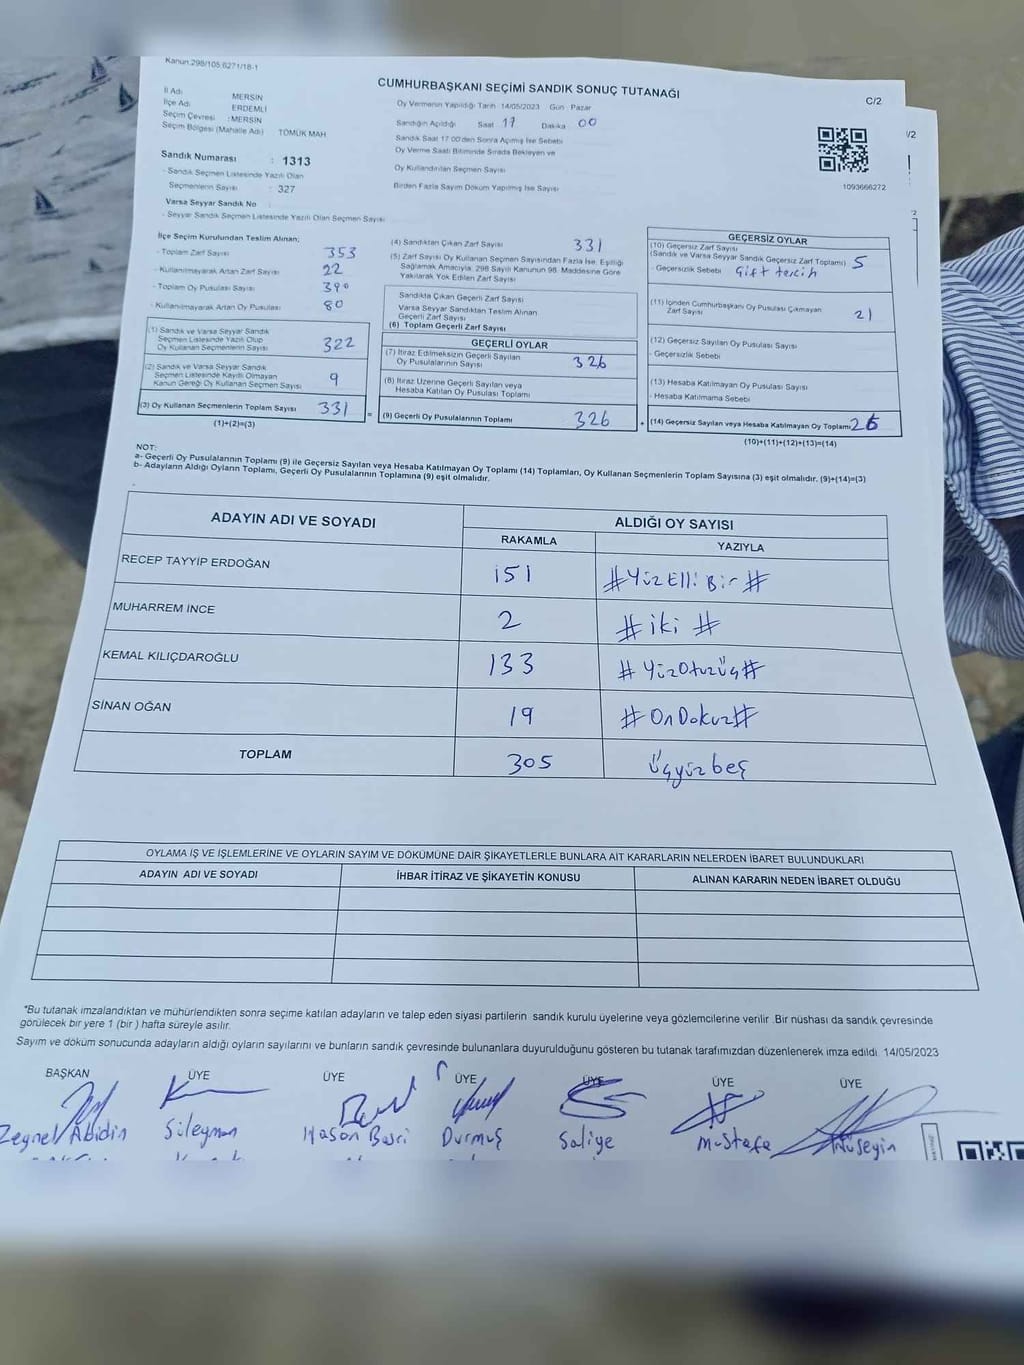 Kanun:298/105;6271/18-1
CUMHURBAŞKANI SEÇİMİ SANDIK SONUÇ TUTANAĞI
C/2
İl Adı MERSİN
İlçe Adı ERDEMLİ
Seçim Çevresi : MERSİN
Seçim Bölgesi (Mahalle Adı) TÖMÜK MAH
Oy Vermenin Yapıldığı Tarih :14/05/2023 Gün : Pazar
Sandığın Açıldığı Saat 17 Dakika 00
Sandık Saat 17:00'den Sonra Açılmış İse Sebebi
Oy Verme Saati Bitiminde Sırada Bekleyen ve
Oy Kullandırılan Seçmen Sayısı
Birden Fazla Sayım Döküm Yapılmış İse Sayısı
/2
1093666272
Sandık Numarası : 1313
- Sandık Seçmen Listesinde Yazılı Olan
Seçmenlerin Sayısı : 327
Varsa Seyyar Sandık No
- Seyyar Sandık Seçmen Listesinde Yazılı Olan Seçmen Sayısı
İlçe Seçim Kurulundan Teslim Alınan;
- Toplam Zarf Sayısı 353
- Kullanılmayarak Artan Zarf Sayısı 22
- Toplam Oy Pusulası Sayısı 390
- Kullanılmayarak Artan Oy Pusulası 80
(1) Sandık ve Varsa Seyyar Sandık
Seçmen Listesinde Yazılı Olup
Oy Kullanan Seçmenlerin Sayısı 322
(2) Sandık ve Varsa Seyyar Sandık
Seçmen Listesinde Kayıtlı Olmayan
Kanun Gereği Oy Kullanan Seçmen Sayısı 9
(3) Oy Kullanan Seçmenlerin Toplam Sayısı 331 =
(1)+(2)=(3)
(4) Sandıktan Çıkan Zarf Sayısı 331
(5) Zarf Sayısı Oy Kullanan Seçmen Sayısından Fazla İse, Eşitliği
Sağlamak Amacıyla, 298 Sayılı Kanunun 98. Maddesine Göre
Yakılarak Yok Edilen Zarf Sayısı
Sandıkta Çıkan Geçerli Zarf Sayısı
Varsa Seyyar Sandıktan Teslim Alınan
Geçerli Zarf Sayısı
(6) Toplam Geçerli Zarf Sayısı
GEÇERLİ OYLAR
(7) İtiraz Edilmeksizin Geçerli Sayılan
Oy Pusulalarının Sayısı 326
(8) İtiraz Üzerine Geçerli Sayılan veya
Hesaba Katılan Oy Pusulası Toplamı
(9) Geçerli Oy Pusulalarının Toplamı 326 +
GEÇERSİZ OYLAR
(10) Geçersiz Zarf Sayısı
(Sandık ve Varsa Seyyar Sandık Geçersiz Zarf Toplamı) 5
- Geçersizlik Sebebi Çift tercih
(11) İçinden Cumhurbaşkanı Oy Pusulası Çıkmayan
Zarf Sayısı 21
(12) Geçersiz Sayılan Oy Pusulası Sayısı
- Geçersizlik Sebebi
(13) Hesaba Katılmayan Oy Pusulası Sayısı
- Hesaba Katılmama Sebebi
(14) Geçersiz Sayılan veya Hesaba Katılmayan Oy Toplamı 26
(10)+(11)+(12)+(13)=(14)
NOT:
a- Geçerli Oy Pusulalarının Toplamı (9) ile Geçersiz Sayılan veya Hesaba Katılmayan Oy Toplamı (14) Toplamları, Oy Kullanan Seçmenlerin Toplam Sayısına (3) eşit olmalıdır. (9)+(14)=(3)
b- Adayların Aldığı Oyların Toplamı, Geçerli Oy Pusulalarının Toplamına (9) eşit olmalıdır.
ADAYIN ADI VE SOYADI ALDIĞI OY SAYISI
RAKAMLA YAZIYLA
RECEP TAYYİP ERDOĞAN 151 #Yüz Elli Bir#
MUHARREM İNCE 2 #iki#
KEMAL KILIÇDAROĞLU 133 #YüzOtuzüç#
SİNAN OĞAN 19 #OnDokuz#
TOPLAM 305 Üçyüzbeş
OYLAMA İŞ VE İŞLEMLERİNE VE OYLARIN SAYIM VE DÖKÜMÜNE DAİR ŞİKAYETLERLE BUNLARA AİT KARARLARIN NELERDEN İBARET BULUNDUKLARI
ADAYIN ADI VE SOYADI İHBAR İTİRAZ VE ŞİKAYETİN KONUSU ALINAN KARARIN NEDEN İBARET OLDUĞU
*Bu tutanak imzalandıktan ve mühürlendikten sonra seçime katılan adayların ve talep eden siyasi partilerin sandık kurulu üyelerine veya gözlemcilerine verilir .Bir nüshası da sandık çevresinde
görülecek bir yere 1 (bir ) hafta süreyle asılır.
Sayım ve döküm sonucunda adayların aldığı oyların sayılarını ve bunların sandık çevresinde bulunanlara duyurulduğunu gösteren bu tutanak tarafımızdan düzenlenerek imza edildi. 14/05/2023
BAŞKAN ÜYE ÜYE ÜYE ÜYE ÜYE ÜYE
Zeynel Abidin Süleyman Hasan Basri Durmuş Saliye Mustafa Hüseyin